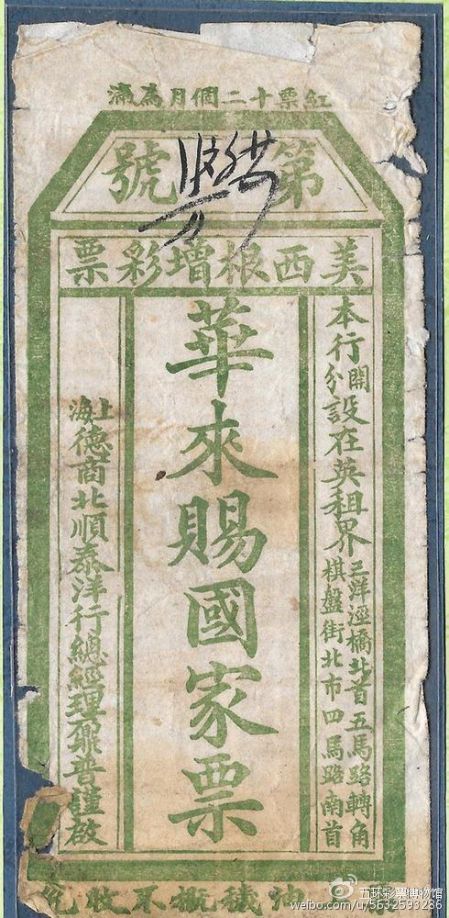 紅票十二個月為滿
第號
美西根增彩票
本行開分設在英租界
三洋涇橋北首五馬路轉角
棋盤街北市四馬路南首
華來賜國家票
上海德商北順泰洋行總經理鼐普謹啟
穢概不收兌
五环彩票博物馆
weibo.com/u/5632593286